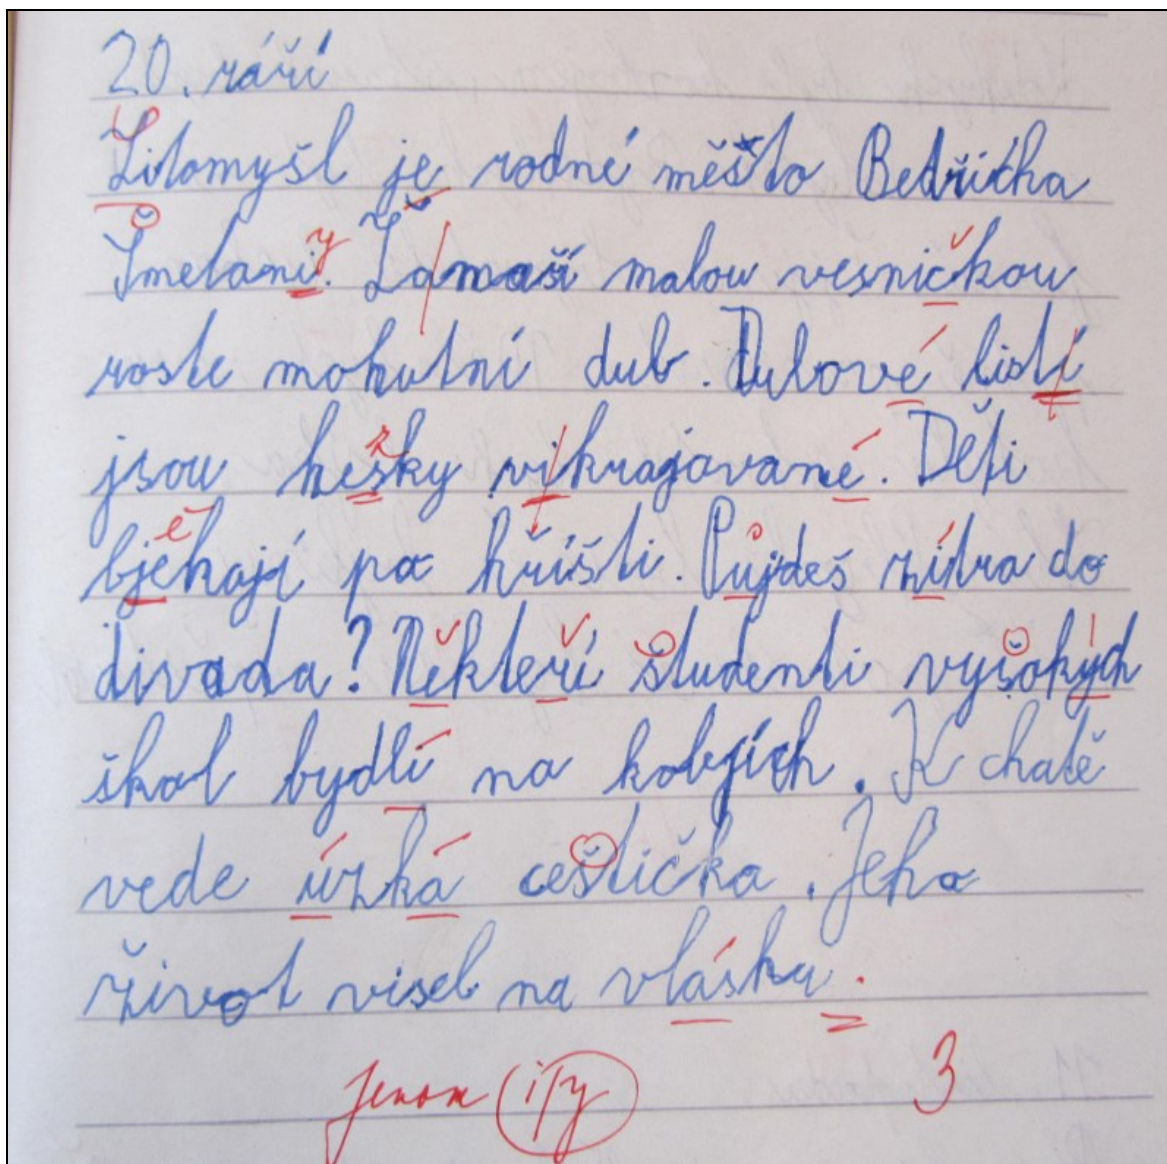 20. září
Litomyšl je rodné město Bedřicha
Smetani. Za naší malou vesničkou
roste mohutní dub. Dubové listí
jsou hešky vikrajované. Děti
bjěhají po hřišti. Půjdeš zítra do
divada? Někteří študenti vyšokých
škol bydlí na kolejích. K chatě
vede úzká ceštička. Jeho
život visel na vlásku.
jenom i/y 3